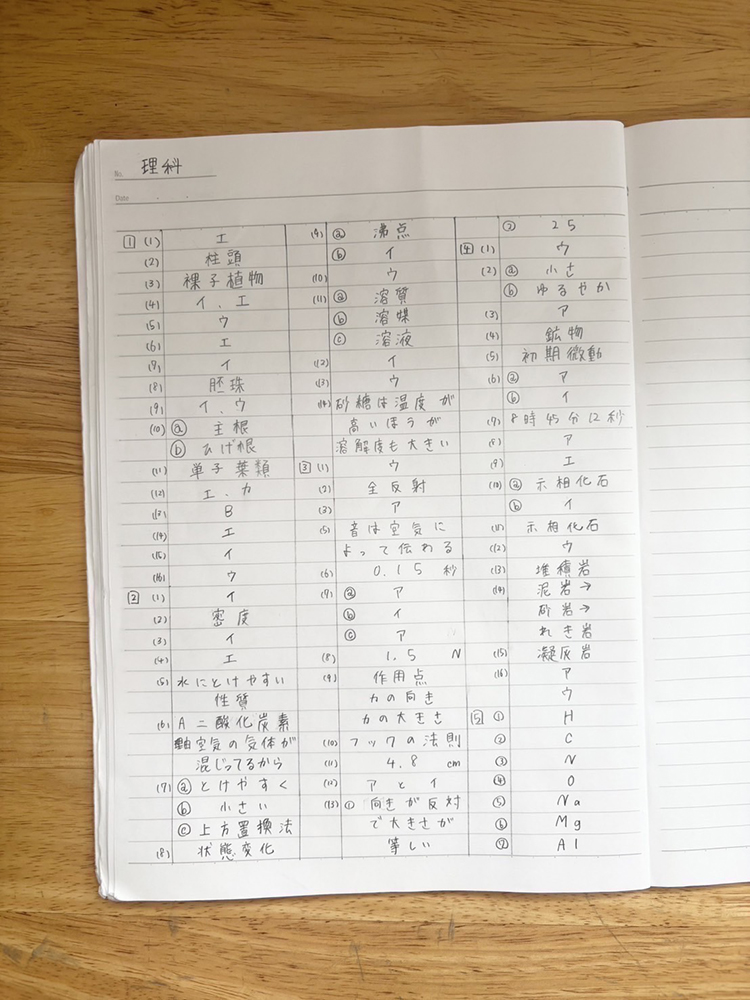 No. 理科
Date
1 (1) エ
(2) 柱頭
(3) 裸子植物
(4) イ、エ
(5) ウ
(6) エ
(7) イ
(8) 胚珠
(9) イ、ウ
(10) ⓐ 主根
ⓑ ひげ根
(11) 単子葉類
(12) エ、カ
(13) B
(14) エ
(15) イ
(16) ウ
2 (1) イ
(2) 密度
(3) イ
(4) エ
(5) 水にとけやすい
性質
(6) A 二酸化炭素
理由 空気の気体が
混じってるから
(7) ⓐ とけやすく
ⓑ 小さい
ⓒ 上方置換法
(8) 状態変化
(9) ⓐ 沸点
ⓑ イ
(10) ウ
(11) ⓐ 溶質
ⓑ 溶媒
ⓒ 溶液
(12) イ
(13) ウ
(14) 砂糖は温度が
高いほうが
溶解度も大きい
3 (1) ウ
(2) 全反射
(3) ア
(5) 音は空気に
よって伝わる
(6) 0.15 秒
(7) ⓐ ア
ⓑ イ
ⓒ ア
(8) 1.5 N
(9) 作用点
力の向き
力の大きさ
(10) フックの法則
(11) 4.8 cm
(12) アとイ
(13) ① 向きが反対
で大きさが
等しい
② 25
4 (1) ウ
(2) ⓐ 小さ
ⓑ ゆるやか
(3) ア
(4) 鉱物
(5) 初期微動
(6) ⓐ ア
ⓑ イ
(7) 8時45分12秒
(8) ア
(9) エ
(10) ⓐ 示相化石
ⓑ イ
(11) 示相化石
(12) ウ
(13) 堆積岩
(14) 泥岩→
砂岩→
れき岩
(15) 凝灰岩
(16) ア
ウ
5 ① H
② C
③ N
④ O
⑤ Na
⑥ Mg
⑦ Al